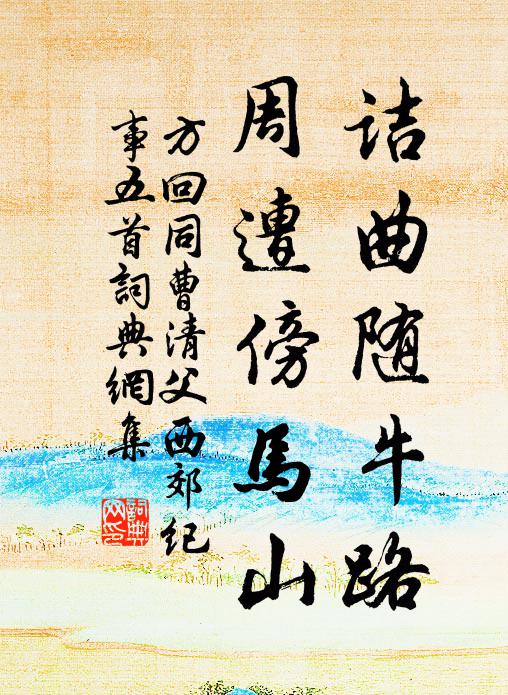 诘曲随牛路
周遭傍馬山
方回同曹清父西郊纪
事五首詞典網集
詞典